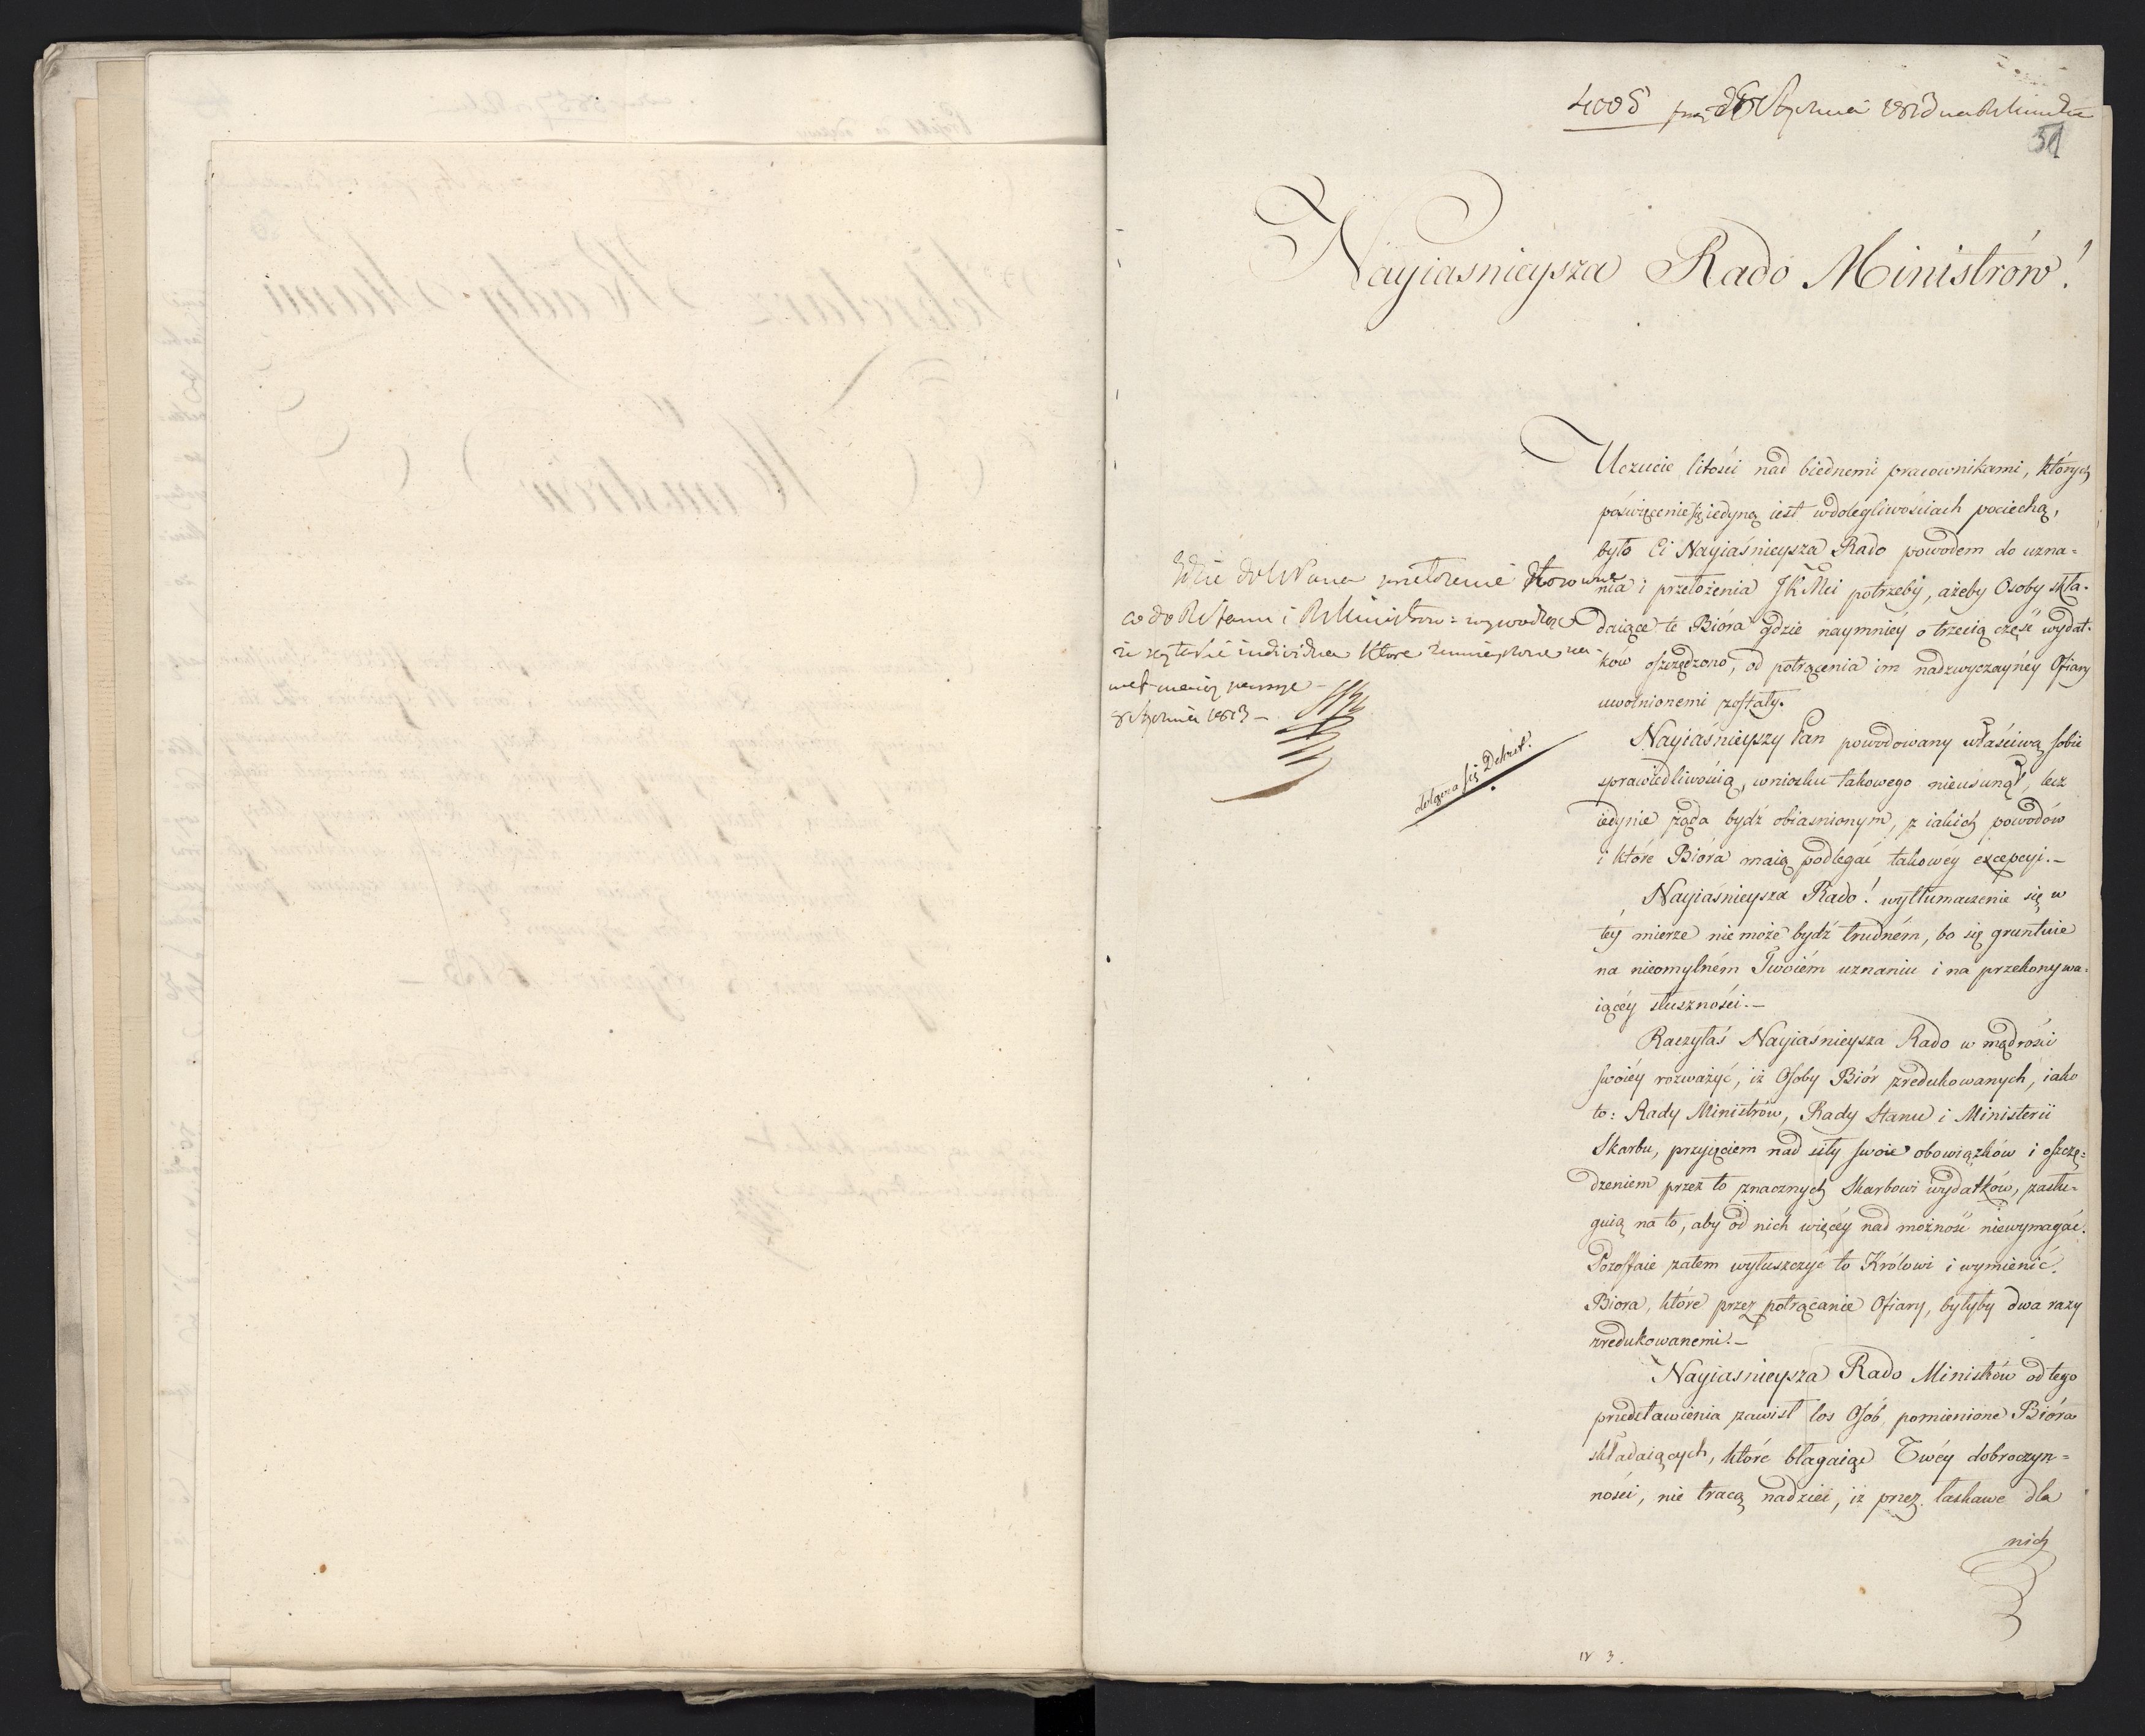 4005 8 Stycznia 1813
51
Nayiasnieysza Rado Ministrów!
Uczucie litości nad biednemi pracownikami, których
poświęcenie się iedyną iest w dolegliwościach pociechą,
było Ci Nayiaśnieysza Rado powodem do uzna=
nia i przełożenia JKMci potrzeby, ażeby Osoby skła-
daiące te Bióra gdzie naymniéy o trzecią część wydat-
ków oszczędzono, od potrącenia im nadzwyczaynéy Ofiary
uwolnionemi zostały.
Nayiaśnieyszy Pan powodowany właściwą sobie
sprawiedliwością, wniosku takowego nieusunął, lecz
iedynie żąda bydź obiasnionym, z iakich powodów
i które Bióra maią podlegać takowéy excepcyi.—
Nayiaśnieysza Rado! wytłumaczenie się w
téy mierze nie może bydź trudném, bo się gruntuie
na nieomylném Twoiém uznaniu i na przekonywa=
iącéy słuszności.—
Raczyłaś Nayiaśnieysza Rado w mądrości
swoiéy rozważyć, iż Osoby Biór zredukowanych, iako
to: Rady Ministrów, Rady Stanu i Ministerii
Skarbu, przyięciem nad siły swoie obowiązków i oszczę=
dzeniem przez to znacznych Skarbowi wydatków, zasłu-
guią na to, aby od nich więcéy nad możność niewymagać.
Pozostaie zatem wyłuszczyć to Królowi i wymienić
Biora, które przez potrącanie Ofiary, byłyby dwa razy
zredukowanemi.—
Nayiasnieysza Rado Ministrów od tego
przedstawienia zawisł los Osób, pomienione Bióra
składaiących, które błagaiąc Twéy dobroczyn=
ności, nie tracą nadziei, iż przez łaskawe dla
nich
Idzie do
co do R Stanu i R Ministrów =
iż są takie individua które
pensye —
8 Stycznia 1813 —
dołącza się Dekret.
IV 3.